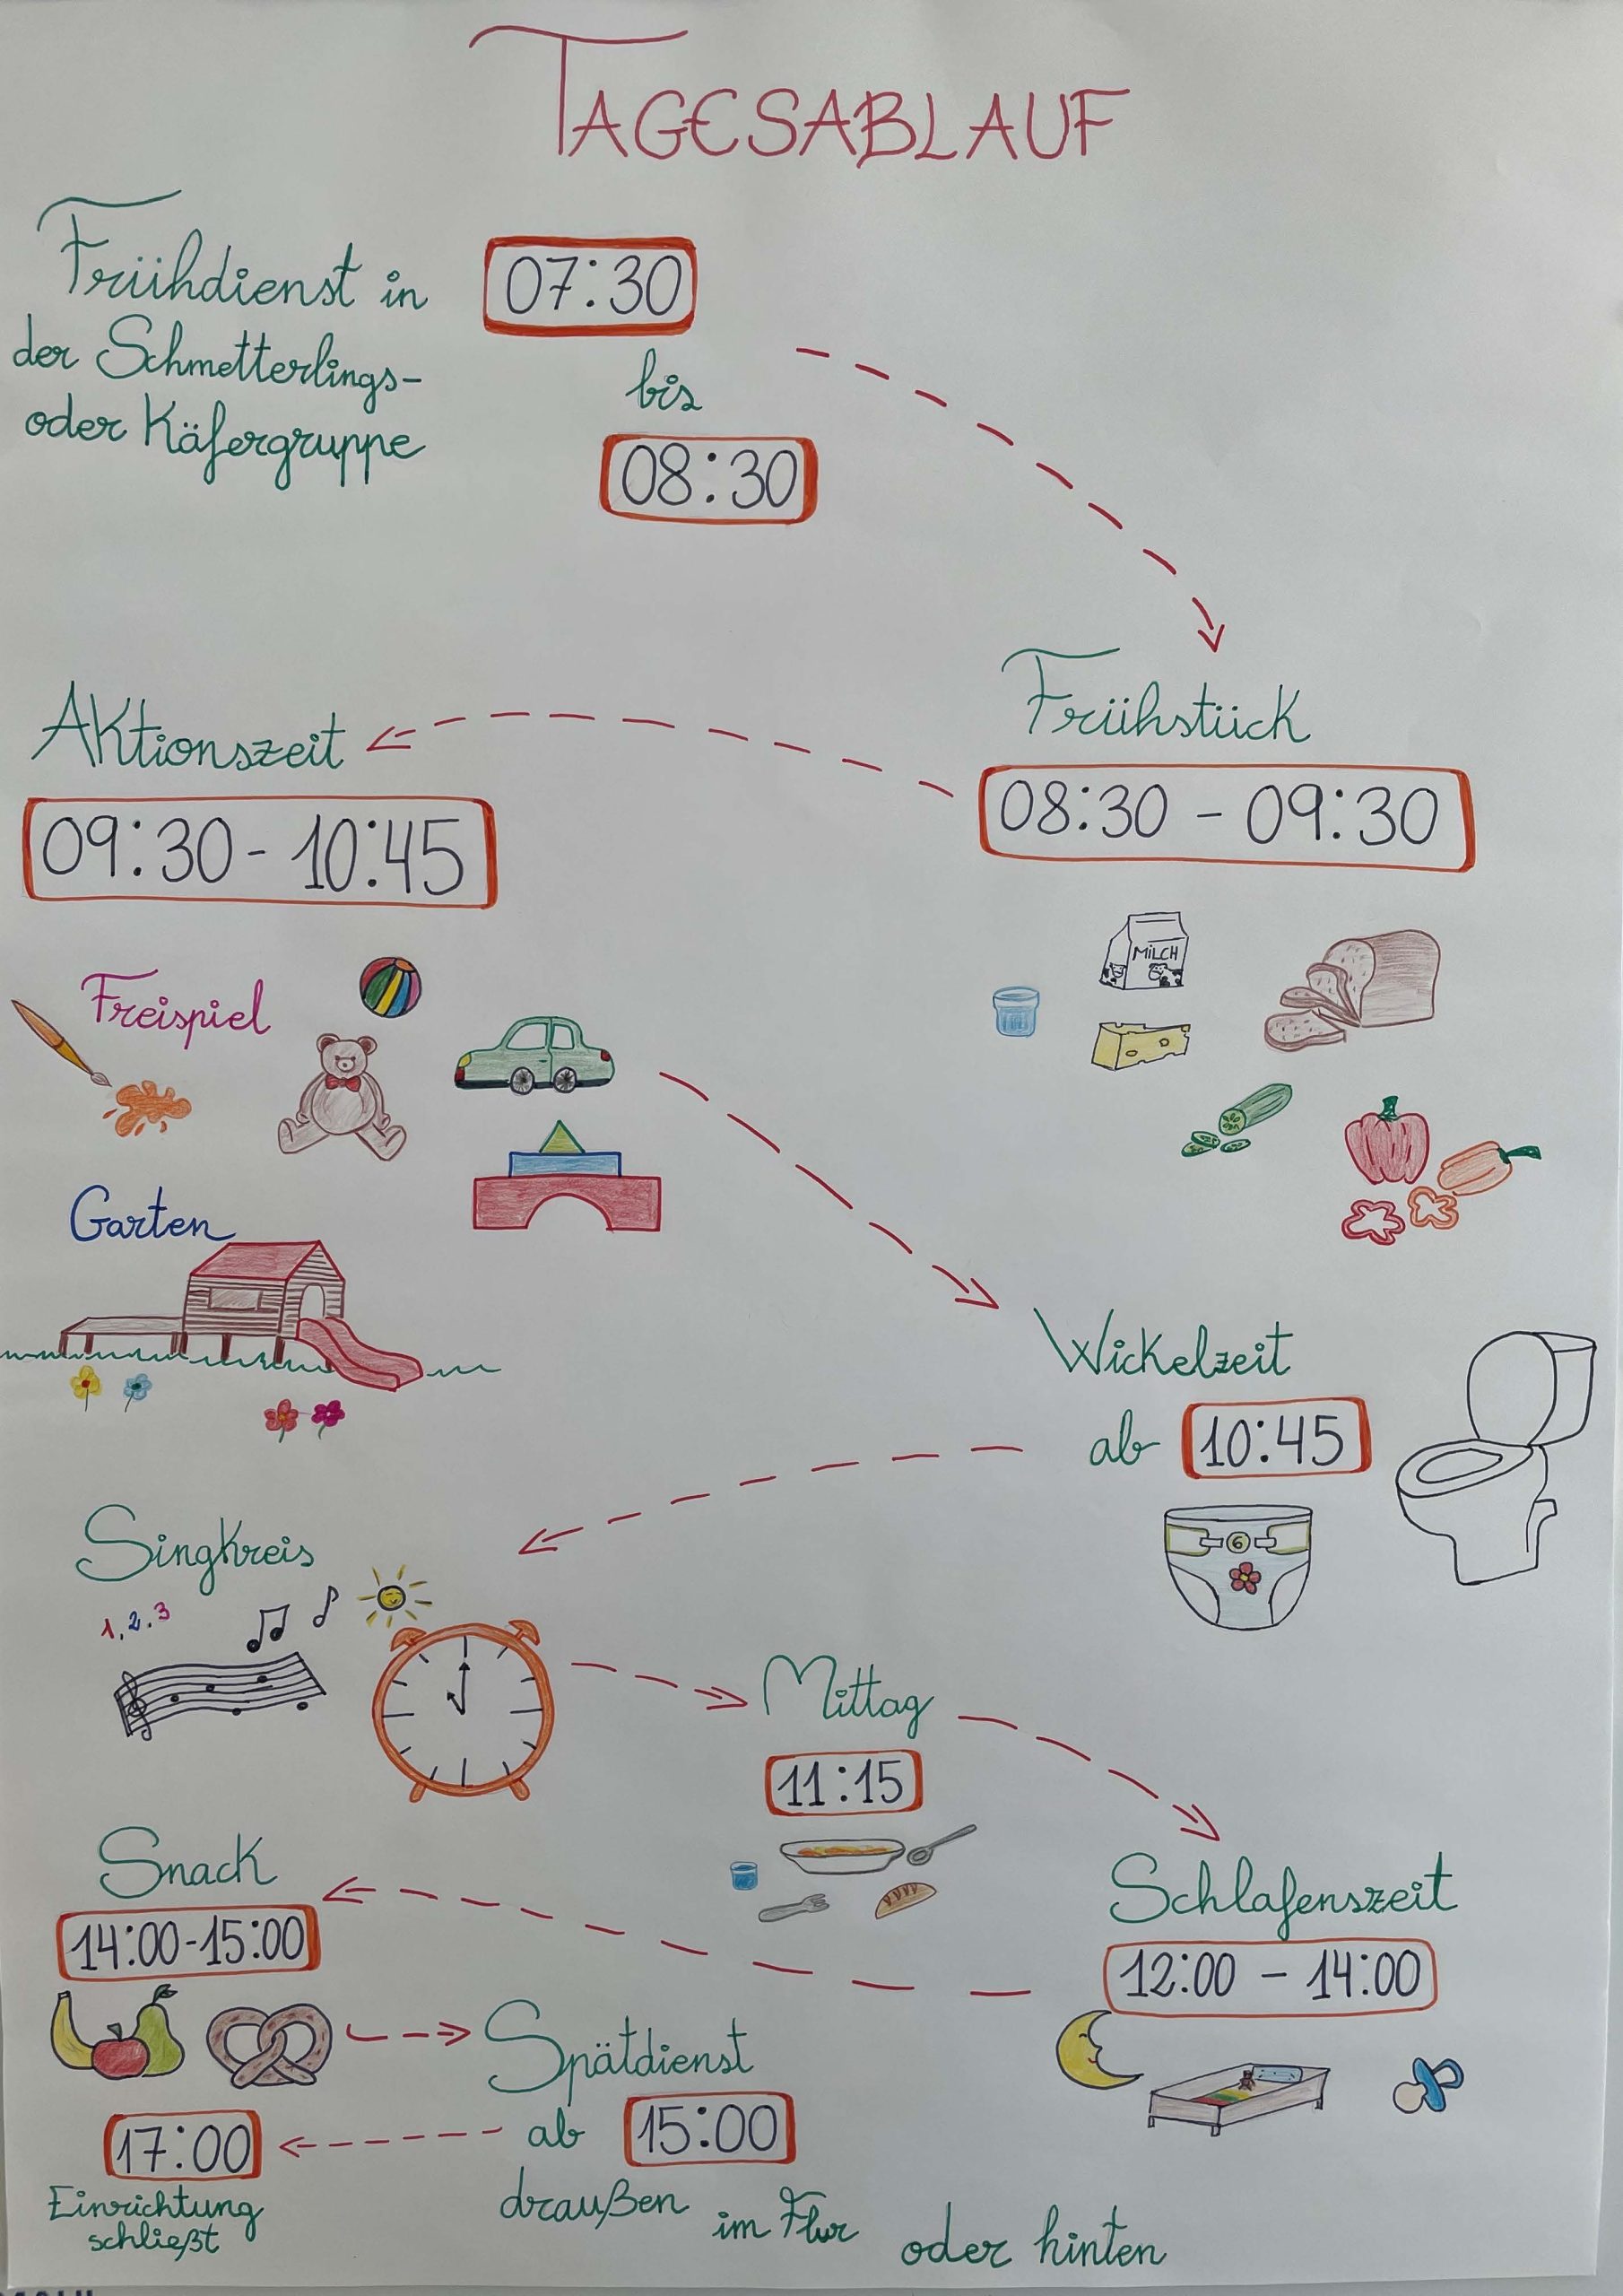 TAGESABLAUF
Frühdienst in
der Schmetterlings-
oder Käfergruppe
07:30
bis
08:30
Frühstück
08:30 - 09:30
MILCH
Aktionszeit
09:30 - 10:45
Freispiel
Garten
Wickelzeit
ab 10:45
6
Singkreis
1, 2, 3
Mittag
11:15
Schlafenszeit
12:00 - 14:00
Snack
14:00-15:00
Spätdienst
ab 15:00
draußen im Flur oder hinten
17:00
Einrichtung
schließt